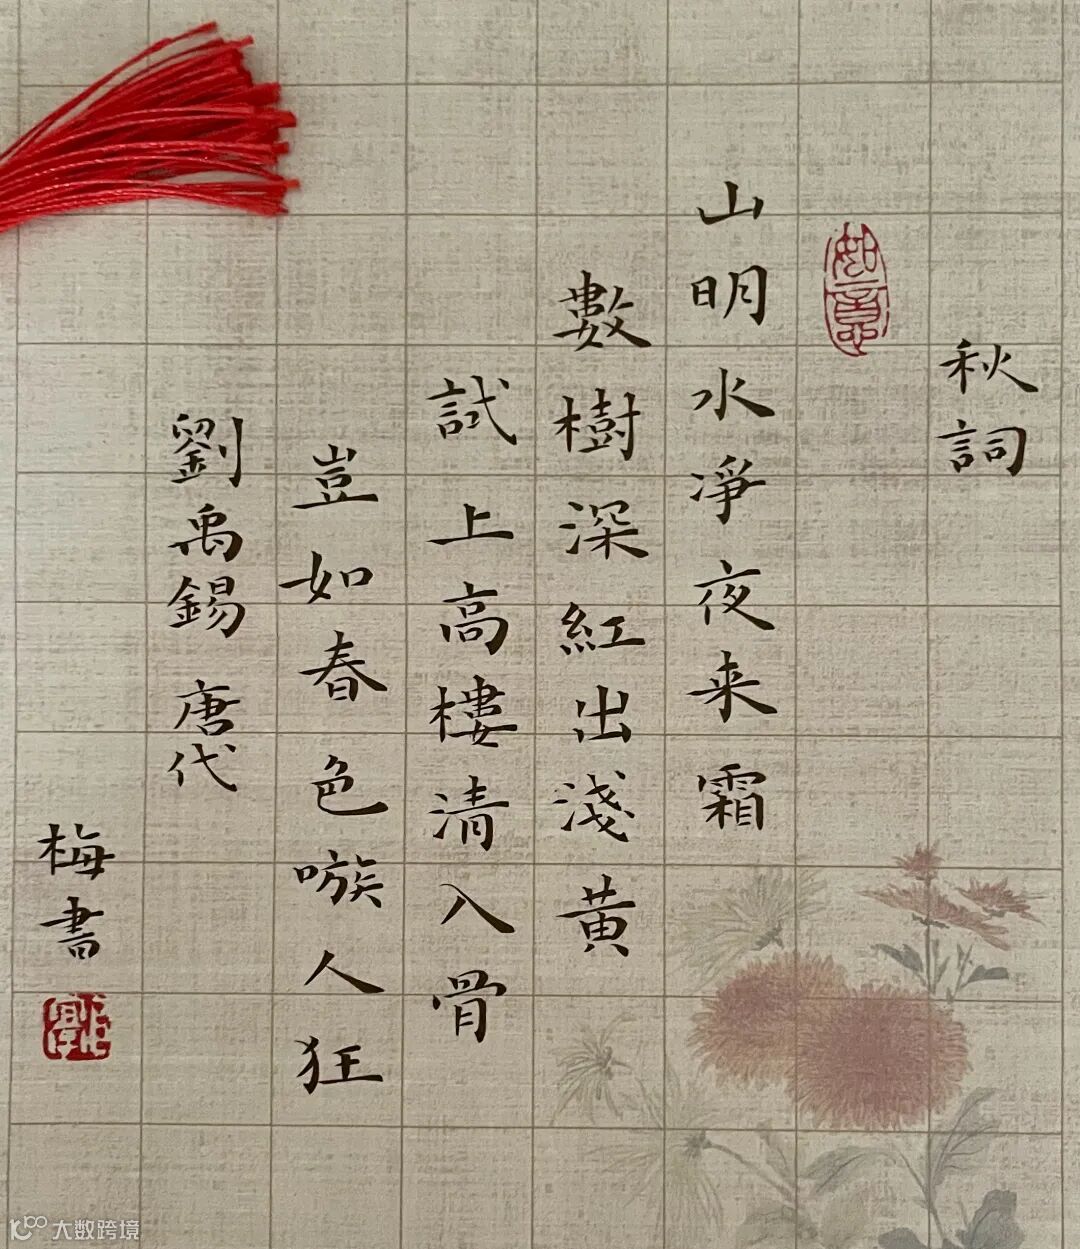 秋詞
如意
山明水淨夜来霜
數樹深紅出淺黄
試上高樓清入骨
豈如春色嗾人狂
劉禹錫 唐代
梅書
大数跨境